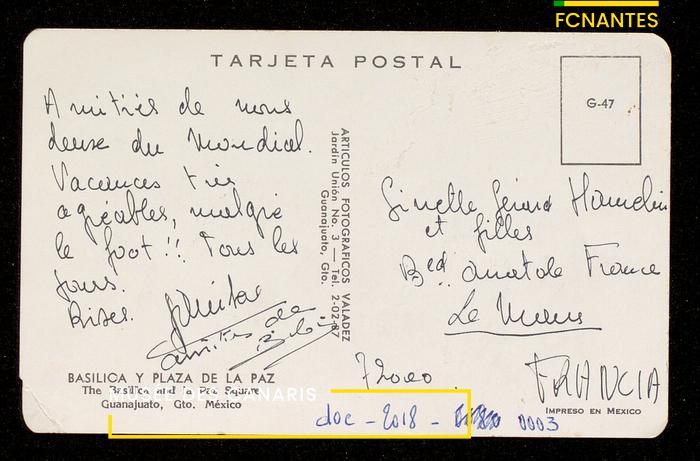 FCNANTES
TARJETA POSTAL
G-47
Amitiés de nous
deux du Mondial.
Vacances très
agréables, malgré
le foot !! Tous les
jours.
Bises.
Amitiés de
ARTICULOS FOTOGRAFICOS VALADEZ
Jardín Unión No. 3 — Tel. 2-02-87
Guanajuato, Gto.
Ginette Gérard Hamelin
et filles
Bed Anatole France
Le Mans
72000
FRANCIA
BASILICA Y PLAZA DE LA PAZ
The Basilica and la Paz Square
Guanajuato, Gto. México
IMPRESO EN MEXICO
MUSÉE DES CANARIS
doc - 2018 - 0003